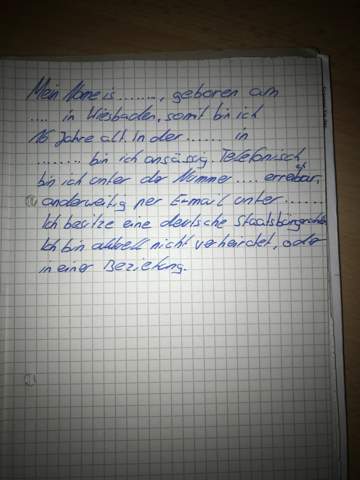 Mein Name is ........, geboren am
.... in Wiesbaden, somit bin ich
16 Jahre alt. In der ...... in
........ bin ich ansässig. Telefonisch
bin ich unter der Nummer .... erreibar,
anderweitig per E-mail unter .......
Ich besitze eine deutsche
Ich bin aktuell nicht verheirdet, oder
in einer Beziehung.